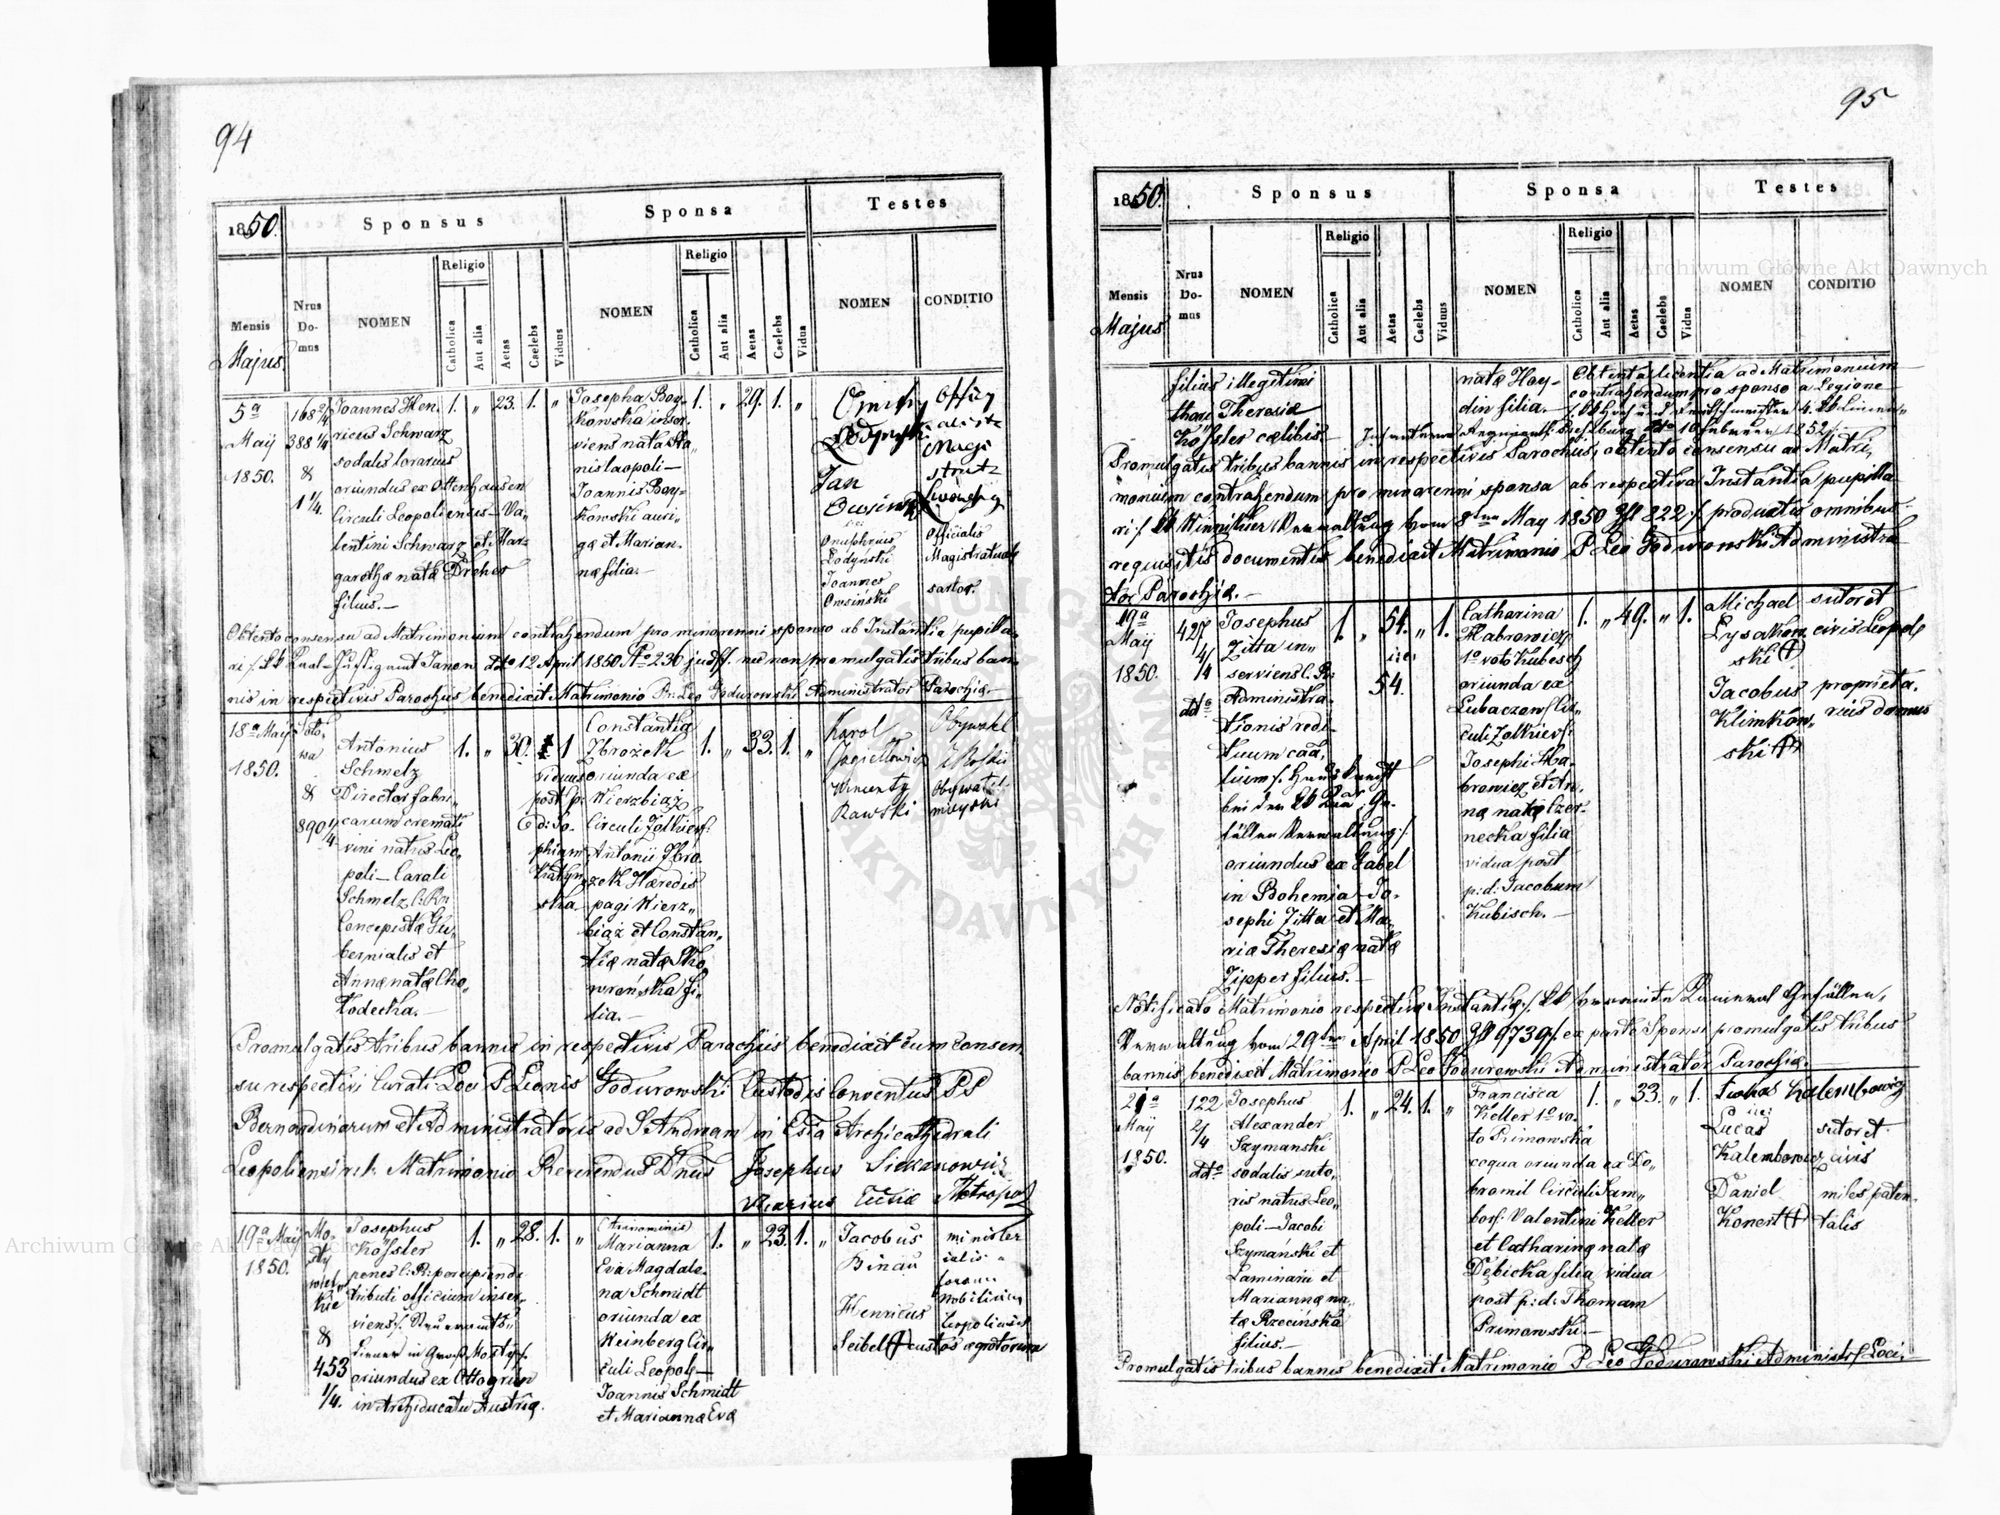 94
1850.
Sponsus
Sponsa
Testes
Mensis
Majus
Nrus Domus
NOMEN
Religio
Catholica
Aut alia
Aetas
Caelebs
Viduus
NOMEN
Religio
Catholica
Aut alia
Aetas
Caelebs
Vidua
NOMEN
CONDITIO
5a
Maÿ
1850.
168 2/4
388 1/4
&
1 1/4.
Joannes Hen-
ricus Schwarz
sodalis lorarius
oriundus ex Ottenhausen
Circuli Leopoliensis – Va„
lentini Schwarz et Mar-
garethæ natæ Dreher
filius.–
1. „ 23. 1. „
Josepha Boy-
kowska inser
viens nata Sta„
nislaopoli –
Joannis Boy-
kowski auri-
gæ et Marian-
næ filia.–
1. „ 29. 1. „
Jan
Onuphrius
Łodyński
Joannes
Owsiński
Officialis
Magistratualis
sartor.
Obtento consensu ad Matrimonium contrahendum pro minorenni sponso ab Instantia pupilla-
ri Janow ddto 12 April 1850 No 236 jud/. nec non promulgatis tribus ban-
nis in respectivis Parochiis benedixit Matrimonio Pr: Leo Godurowski Administrator Parochiæ.–
18a Maÿ
1850.
&
890 1/4
Antonius
Schmelz
Director fabri-
carum cremati
vini natus Leo„
poli – Caroli
Schmelz C: R:
Concepistæ Gu-
bernialis et
Annæ natæ Cho„
lodecka.–
1. „ 30. 1
viduus
post p:
d: So-
phiam
Constantia
Zbrożek
oriunda ex
Wierzbiąż
Circuli Zolkiew:
Antonii Zbro-
żek Hæredis
pagi Wierz„
biąż et Constan„
tiæ natæ Sko„
wrońska fi-
lia.–
1. „ 33. 1. „
Karol
Jagiełłowicz
Wincenty
Rawski
Obywatel
mieyski
Promulgatis tribus bannis in respectivis Parochiis benedixit cum consen
su respectivi Curati Loci P Leonis Godurowski Custodis Conventus PP
Bernardinorum et Administratoris ad S Andream in Ecsia Archicathedrali
Leopoliensi r: l: Matrimonio Reverendus Dnus Josephus
Vicarius Ecclæ Metropol
19a Maÿ
1850.
Mo-
sty
wiel„
kie
&
453
1/4.
Josephus
Kößler
penes C: R: percipiendi
tributi officium inser-
viens/. Steueramts„
Diener in Groß Mosty/.
oriundus ex Ottogrün
in Archiducatu Austriæ.
1. „ 28. 1. „
Marianna
Eva Magdale-
na Schmidt
oriunda ex
Weinberg Cir„
culi Leopol –
Joannis Schmidt
et Mariannæ Evæ
1. „ 23. 1. „
Jacobus
Binau
Henricus
Seibel
minister
fororum
nobilium
Leopoliensis
custos ægrotorum
95
1850.
Sponsus
Sponsa
Testes
Mensis
Majus
Nrus Domus
NOMEN
Religio
Catholica
Aut alia
Aetas
Caelebs
Viduus
NOMEN
Religio
Catholica
Aut alia
Aetas
Caelebs
Vidua
NOMEN
CONDITIO
filius illegitimi
thori Theresiæ
Kößler cœlibis.–
natæ Hay-
din filia.–
Obtenta licentia ad Matrimonium
contrahendum pro sponso a Legione
10 Februar 1852
Promulgatis tribus bannis in respectivis Parochiis, obtento consensu ad Matri„
monium contrahendum pro minorenni sponsa ab respectiva Instantia pupilla
ri Verwaltung vom 8ten May 1850 Zhl 822/. productis omnibus
requisitis documentis benedixit Matrimonio P Leo Godurowski Administra
tor Parochiæ.–
19a
Maÿ
1850.
427
4/4
ddto
Josephus
Zitta in„
serviens C. R:
Administra-
tionis redi-
tuum caa„
lium/. Hausknecht
bei der kk Kaal Ge-
fällen Verwaltung:/
oriundus ex Gabel
in Bohemia – Jo-
sephi Zitta et Ma-
riæ Theresiæ natæ
Zipper filius.–
1. „ 54. „ 1.
54.
Catharina
Habrowicz
1o voto Kubesch
oriunda ex
Lubaczow Cir„
culi Zolkiew:
Josephi Ha-
browicz et An„
næ natæ Czer-
necka filia
vidua post
p: d: Jacobum
Kubisch.–
1. „ 49. „ 1.
Michael
Łysakow
ski
Jacobus
Klimkow„
ski
sutor et
civis Leopol
proprieta„
rius domus
Notificato Matrimonio respectivæ Instantiæ/. kk vereinte Kameral Gefällen„
Verwaltung vom 29ten April 1850 Zhl 9739/. ex parte Sponsi promulgatis tribus
bannis, benedixit Matrimonio P Leo Godurowski Administrator Parochiæ.–
29a
May
1850.
122
2/4
ddto
Josephus
Alexander
Szymanski
sodalis suto-
ris natus Leo„
poli – Jacobi
Szymański et
Laminarii et
Mariannæ na„
tæ Rzecińska
filius.–
1. „ 24. 1. „
Francisca
Keller 1o vo-
to Primowska
coqua oriunda ex Do„
bromil Circuli Sam„
bor: Valentini Keller
et Catharinæ natæ
Dębicka filia vidua
post p: d: Thomam
Primowski.–
1. „ 33. „ 1.
Łukas Kalembowicz
Lucas
Kalembowicz
Daniel
Konert
sutor et
civis
miles paten-
talis
Promulgatis tribus bannis benedixit Matrimonio P Leo Godurowski Administr/. Loci.
Archiwum Główne Akt Dawnych
Archiwum Główne Akt Dawnych
ARCHIWUM GŁÓWNE AKT DAWNYCH